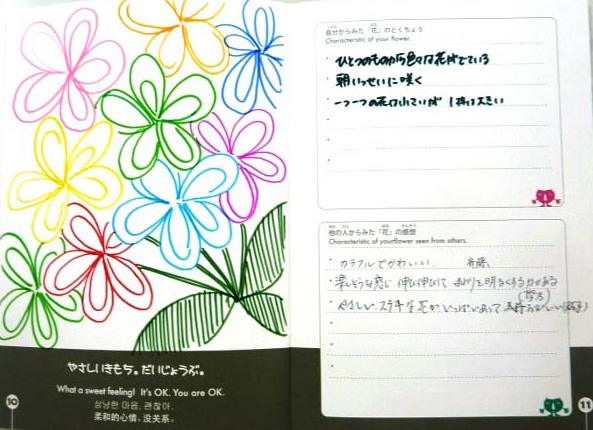 やさしいきもち。だいじょうぶ。
What a sweet feeling! It's OK. You are OK.
상냥한 마음. 괜찮아.
柔和的心情。没关系。
10
自分からみた「花」のとくちょう
Characteristic of your flower.
ひとつのものから色々な花がでている
朝いっせいに咲く
一つ一つの花は小さいが 1株は大きい
他の人からみた「花」の感想
Characteristic of yourflower seen from others.
カラフルでかわいい。
楽しそうな感じ 伸び伸びして 周りを明るくする力がある
やさしい ステキな花が いっぱいあって
11